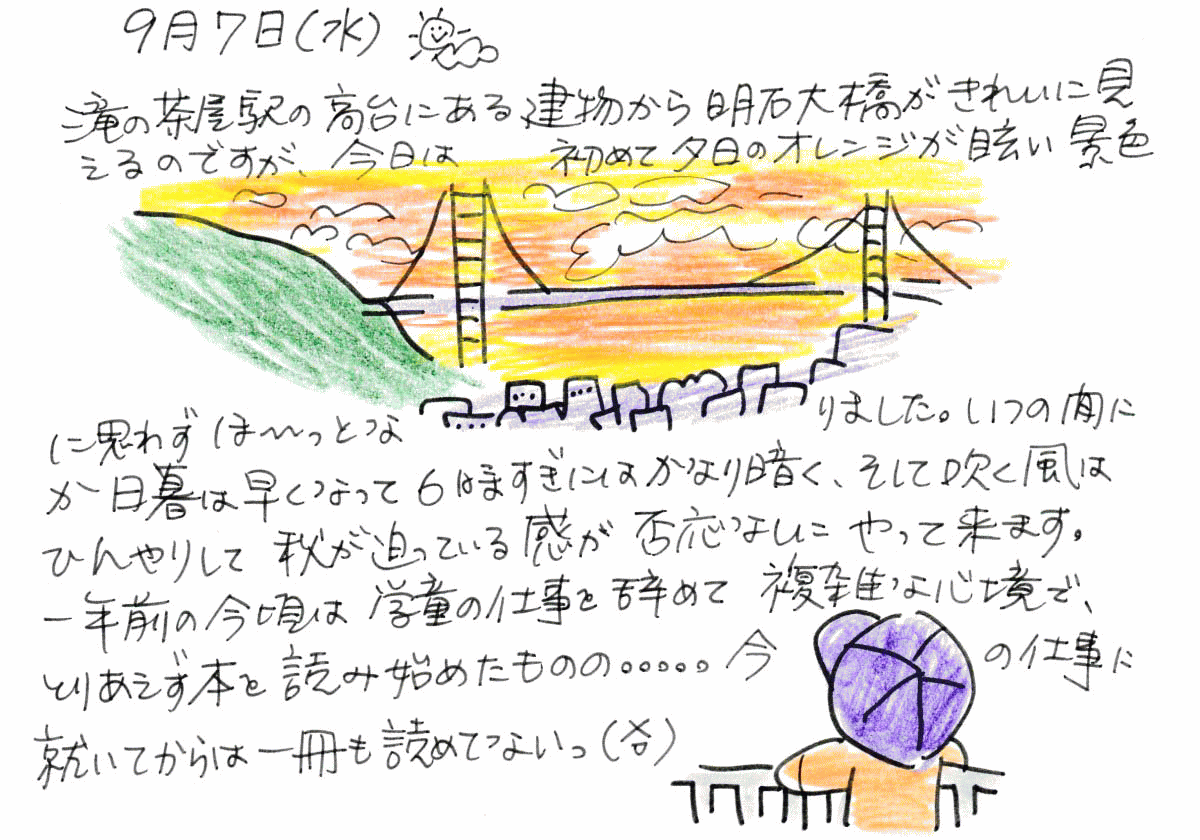 9月7日(水)
滝の茶屋駅の高台にある建物から明石大橋がきれいに見
えるのですが、今日は 初めて夕日のオレンジが眩い景色
に思わずほ〜〜っとな りました。いつの間に
か日暮は早くなって6時すぎにはかなり暗く、そして吹く風は
ひんやりして秋が迫っている感が否応なしに やって来ます。
一年前の今頃は学童の仕事を辞めて複雑な心境で、
とりあえず本を読み始めたものの。。。。。今 の仕事に
就いてからは一冊も読めてないっ(笑)